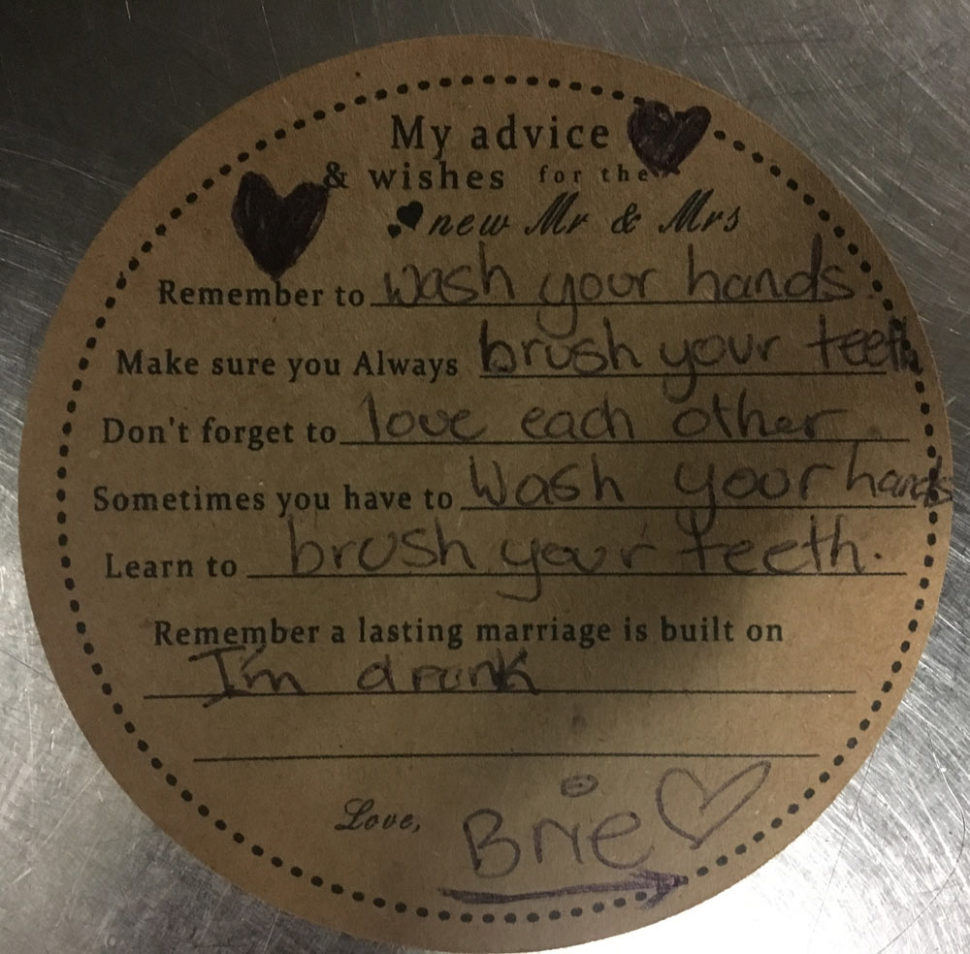 My advice
& wishes for the
new Mr & Mrs
Remember to wash your hands.
Make sure you Always brush your teeth
Don't forget to love each other.
Sometimes you have to Wash your hands
Learn to brush your teeth.
Remember a lasting marriage is built on
I'm drunk
Love, Brie